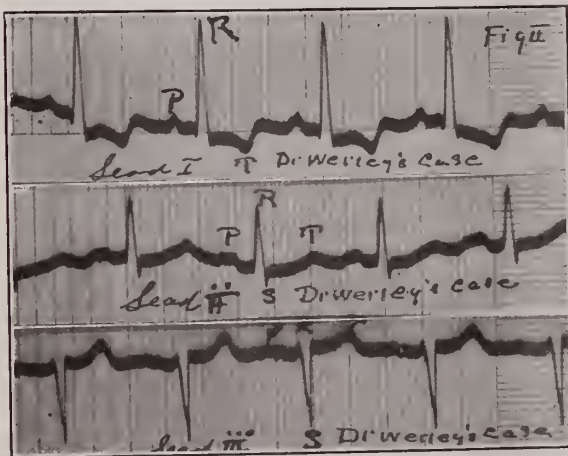 R
Fig II
P
Lead I T Dr Werley's Case
R
P T
Lead II S Dr Werley's Case
P
Lead III S Dr Werley's Case